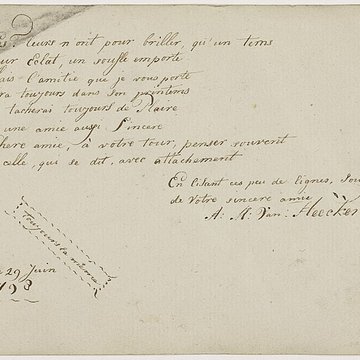 fleurs n'ont pour briller, qu'un tems
Eclat, un soufle emporte
l'amitie que je vous porte
toujours dans son printems
tacherai toujours de Plaire
une amie aussi Sincere
chere amie, à vôtre tour, penser souvent
celle, qui se dit, avec attachement
En lisant ces peu de lignes,
de Vôtre sincere amie
A: M: Van: Heecker
toujours la même
29 Juin